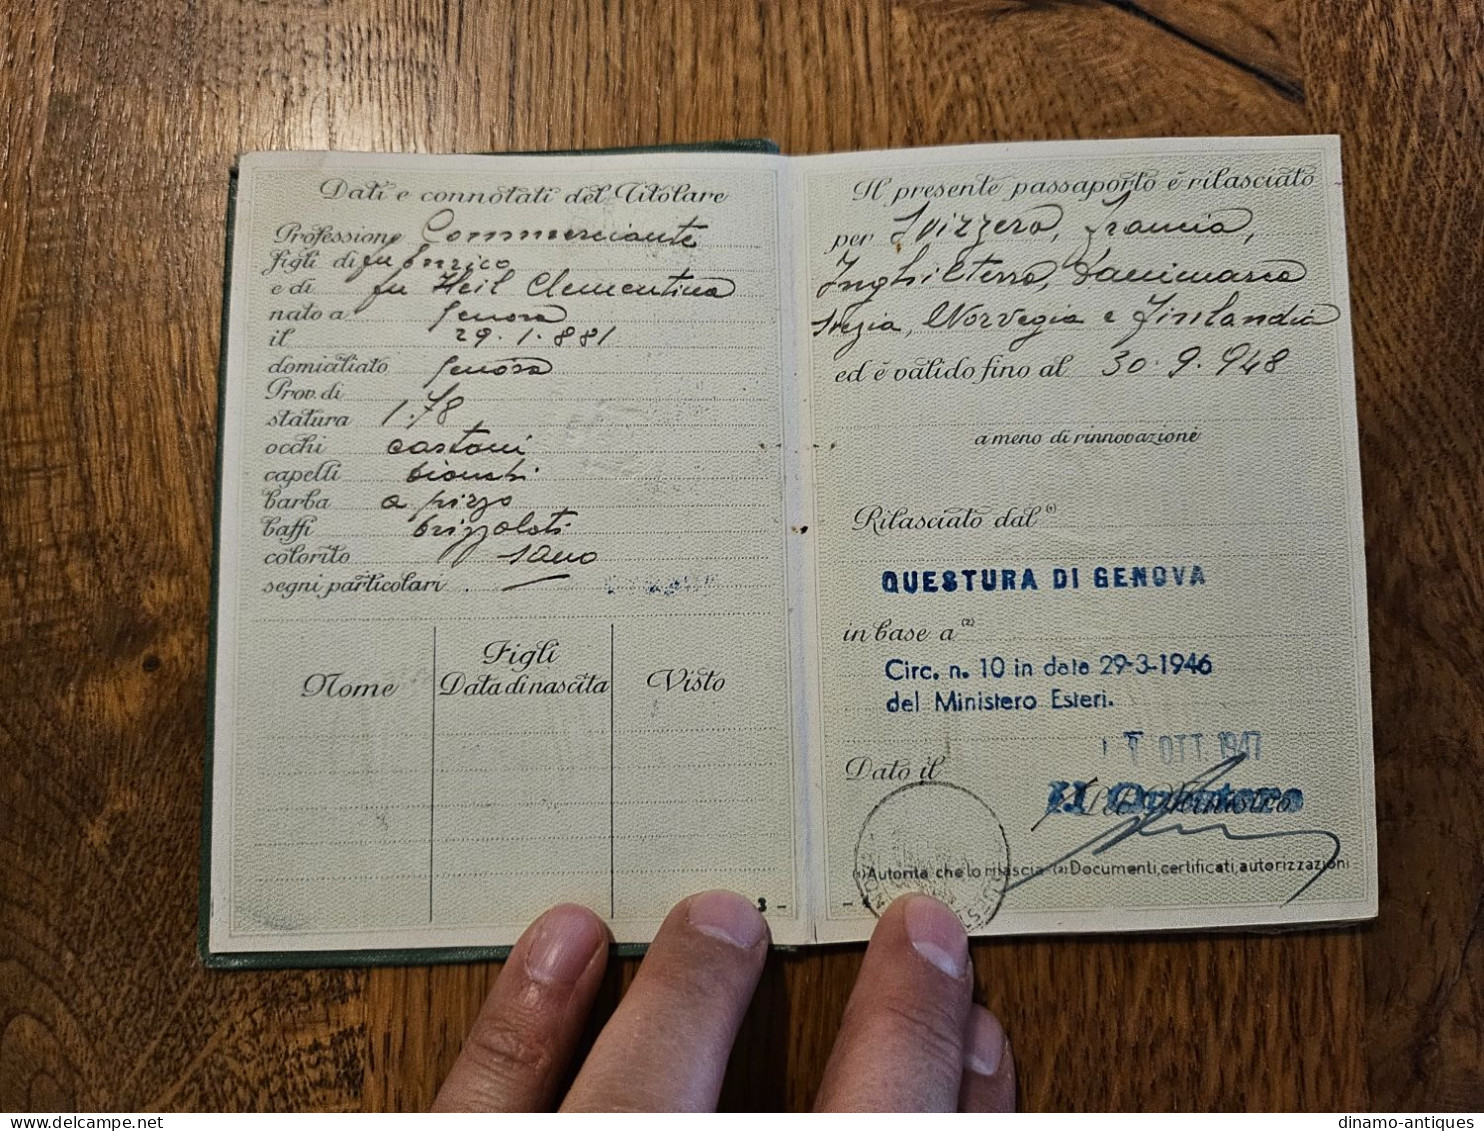 Dati e connotati del Titolare
Professione Commerciante
figli di fu Enrico
e di fu Heil Clementina
nato a Genova
il 29.1.881
domiciliato Genova
Prov. di
statura 1.78
occhi castani
capelli bianchi
barba a pizzo
baffi brizzolati
colorito sano
segni particolari
Figli
Nome Data di nascita Visto
3 -
Il presente passaporto è rilasciato
per Svizzera, Francia,
Inghilterra, Danimarca
Svezia, Norvegia e Finlandia
ed è valido fino al 30.9.948
a meno di rinnovazione
Rilasciato dal (1)
QUESTURA DI GENOVA
in base a (2)
Circ. n. 10 in data 29-3-1946
del Ministero Esteri.
OTT 1947
Dato il
Il Questore
(1) Autorità che lo rilascia - (2) Documenti, certificati, autorizzazioni
delcampe.net
dinamo-antiques